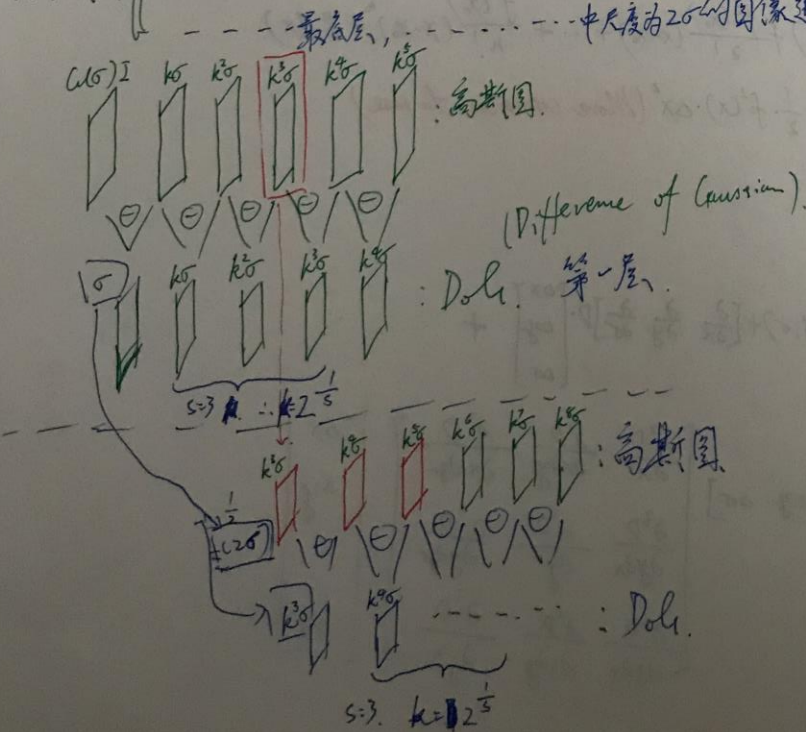 最底层, 中尺度为2σ的图像
(1σ)I kσ k²σ k³σ k⁴σ k⁵σ :高斯图.
⊖ ⊖ ⊖ ⊖ ⊖
(Difference of Gaussian).
σ kσ k²σ k³σ k⁴σ : DoG. 第一层.
s=3 ∴ k=2^{1/s}
k³σ k⁴σ k⁵σ k⁶σ k⁷σ k⁸σ :高斯图
⊖ ⊖ ⊖ ⊖ ⊖
(2σ)
k³σ k⁴σ ------- : DoG.
s=3. k=2^{1/s}